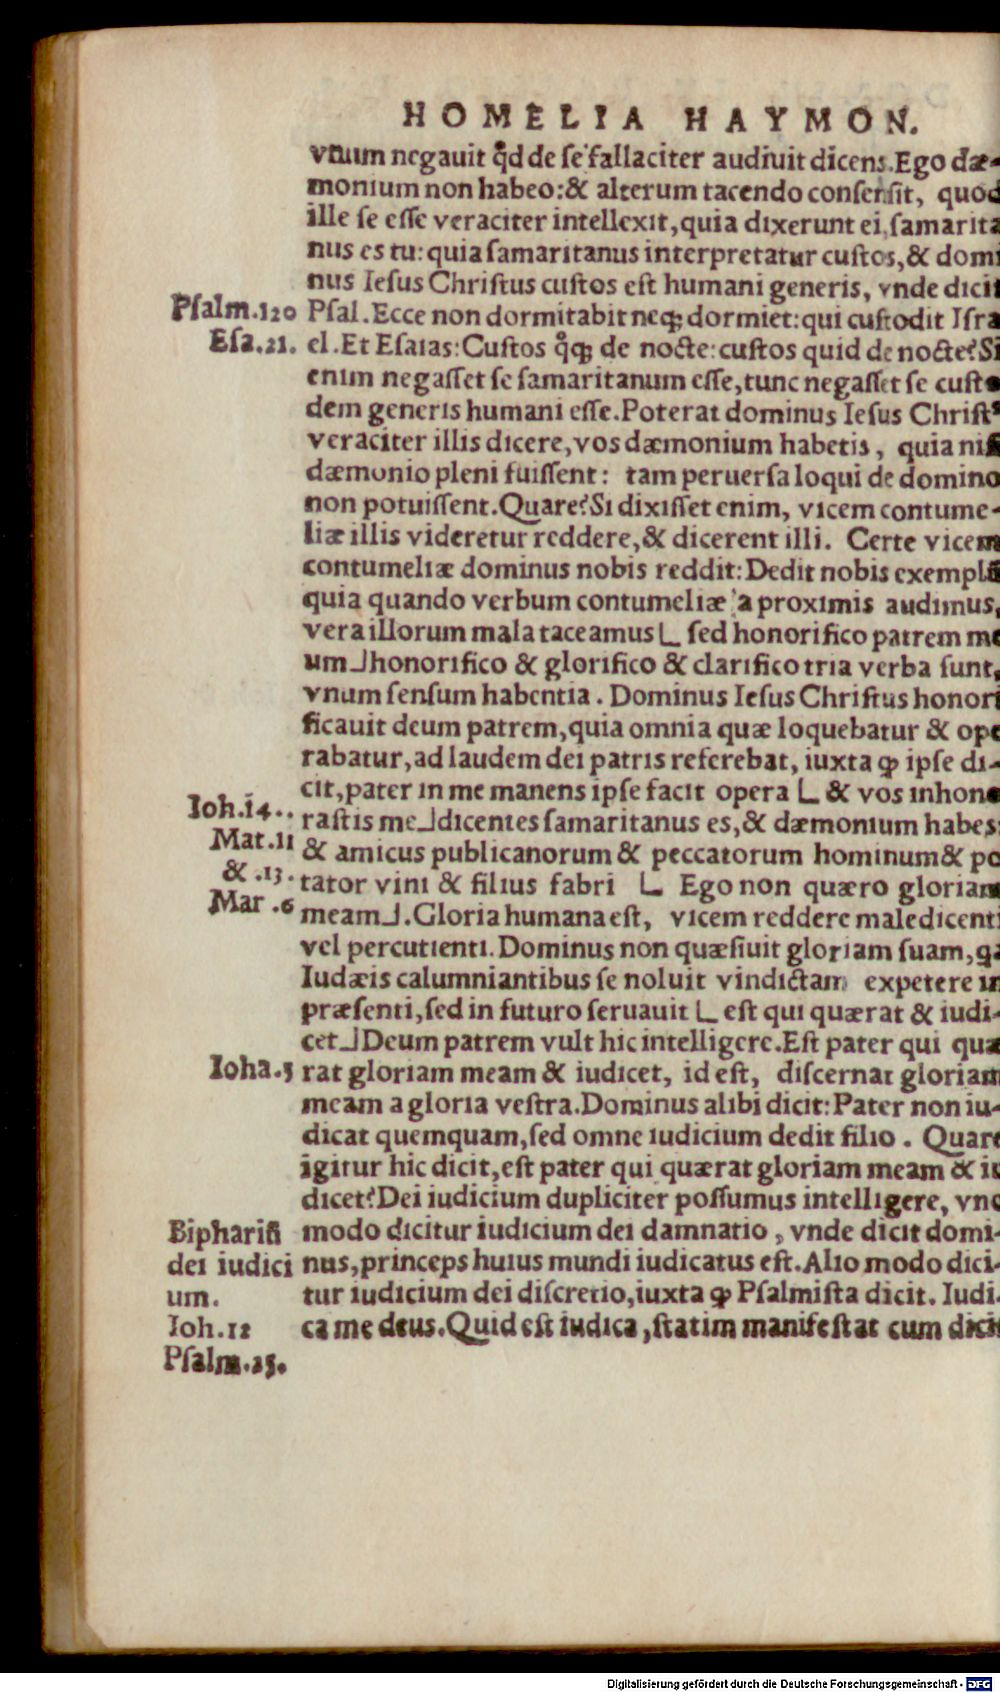 HOMELIA HAYMON.
vnum negauit qd de se fallaciter audiuit dicens. Ego dæ-
monium non habeo: & alterum tacendo consensit, quod
ille se esse veraciter intellexit, quia dixerunt ei, samarita
nus es tu: quia samaritanus interpretatur custos, & domi
nus Iesus Christus custos est humani generis, vnde dicit
Psalm.120 Psal. Ecce non dormitabit neqꝫ dormiet: qui custodit Isra
Esa.21. el. Et Esaias: Custos qͦqꝫ de nocte: custos quid de nocte? Si
enim negasset se samaritanum esse, tunc negasset se custo
dem generis humani esse. Poterat dominus Iesus Christꝰ
veraciter illis dicere, vos dæmonium habetis, quia nisi
dæmonio pleni fuissent: tam peruersa loqui de domino
non potuissent. Quare? Si dixisset enim, vicem contume-
liæ illis videretur reddere, & dicerent illi. Certe vicem
contumeliæ dominus nobis reddit: Dedit nobis exemplū
quia quando verbum contumeliæ a proximis audimus,
vera illorum mala taceamus L sed honorifico patrem me
um ⅃ honorifico & glorifico & clarifico tria verba sunt,
vnum sensum habentia. Dominus Iesus Christus honori
ficauit deum patrem, quia omnia quæ loquebatur & ope
rabatur, ad laudem dei patris referebat, iuxta ꝙ ipse di-
cit, pater in me manens ipse facit opera L & vos inhono
Ioh.14.. rastis me ⅃ dicentes samaritanus es, & dæmonium habes:
Mat.11 & amicus publicanorum & peccatorum hominum & po
& .13. tator vini & filius fabri L Ego non quæro gloriam
Mar .6 meam ⅃. Gloria humana est, vicem reddere maledicenti
vel percutienti. Dominus non quæsiuit gloriam suam, q
Iudæis calumniantibus se noluit vindictam expetere in
præsenti, sed in futuro seruauit L est qui quærat & iudi-
cet ⅃ Deum patrem vult hic intelligere. Est pater qui quæ
Ioha.5 rat gloriam meam & iudicet, id est, discernat gloriam
meam a gloria vestra. Dominus alibi dicit: Pater non iu-
dicat quemquam, sed omne iudicium dedit filio. Quare
igitur hic dicit, est pater qui quærat gloriam meam & iu
dicet? Dei iudicium dupliciter possumus intelligere, vno
Biphariā modo dicitur iudicium dei damnatio, vnde dicit domi-
dei iudici nus, princeps huius mundi iudicatus est. Alio modo dici-
um. tur iudicium dei discretio, iuxta ꝙ Psalmista dicit. Iudi-
Ioh.12 ca me deus. Quid est iudica, statim manifestat cum dicit
Psalm.25.
Digitalisierung gefördert durch die Deutsche Forschungsgemeinschaft - DFG